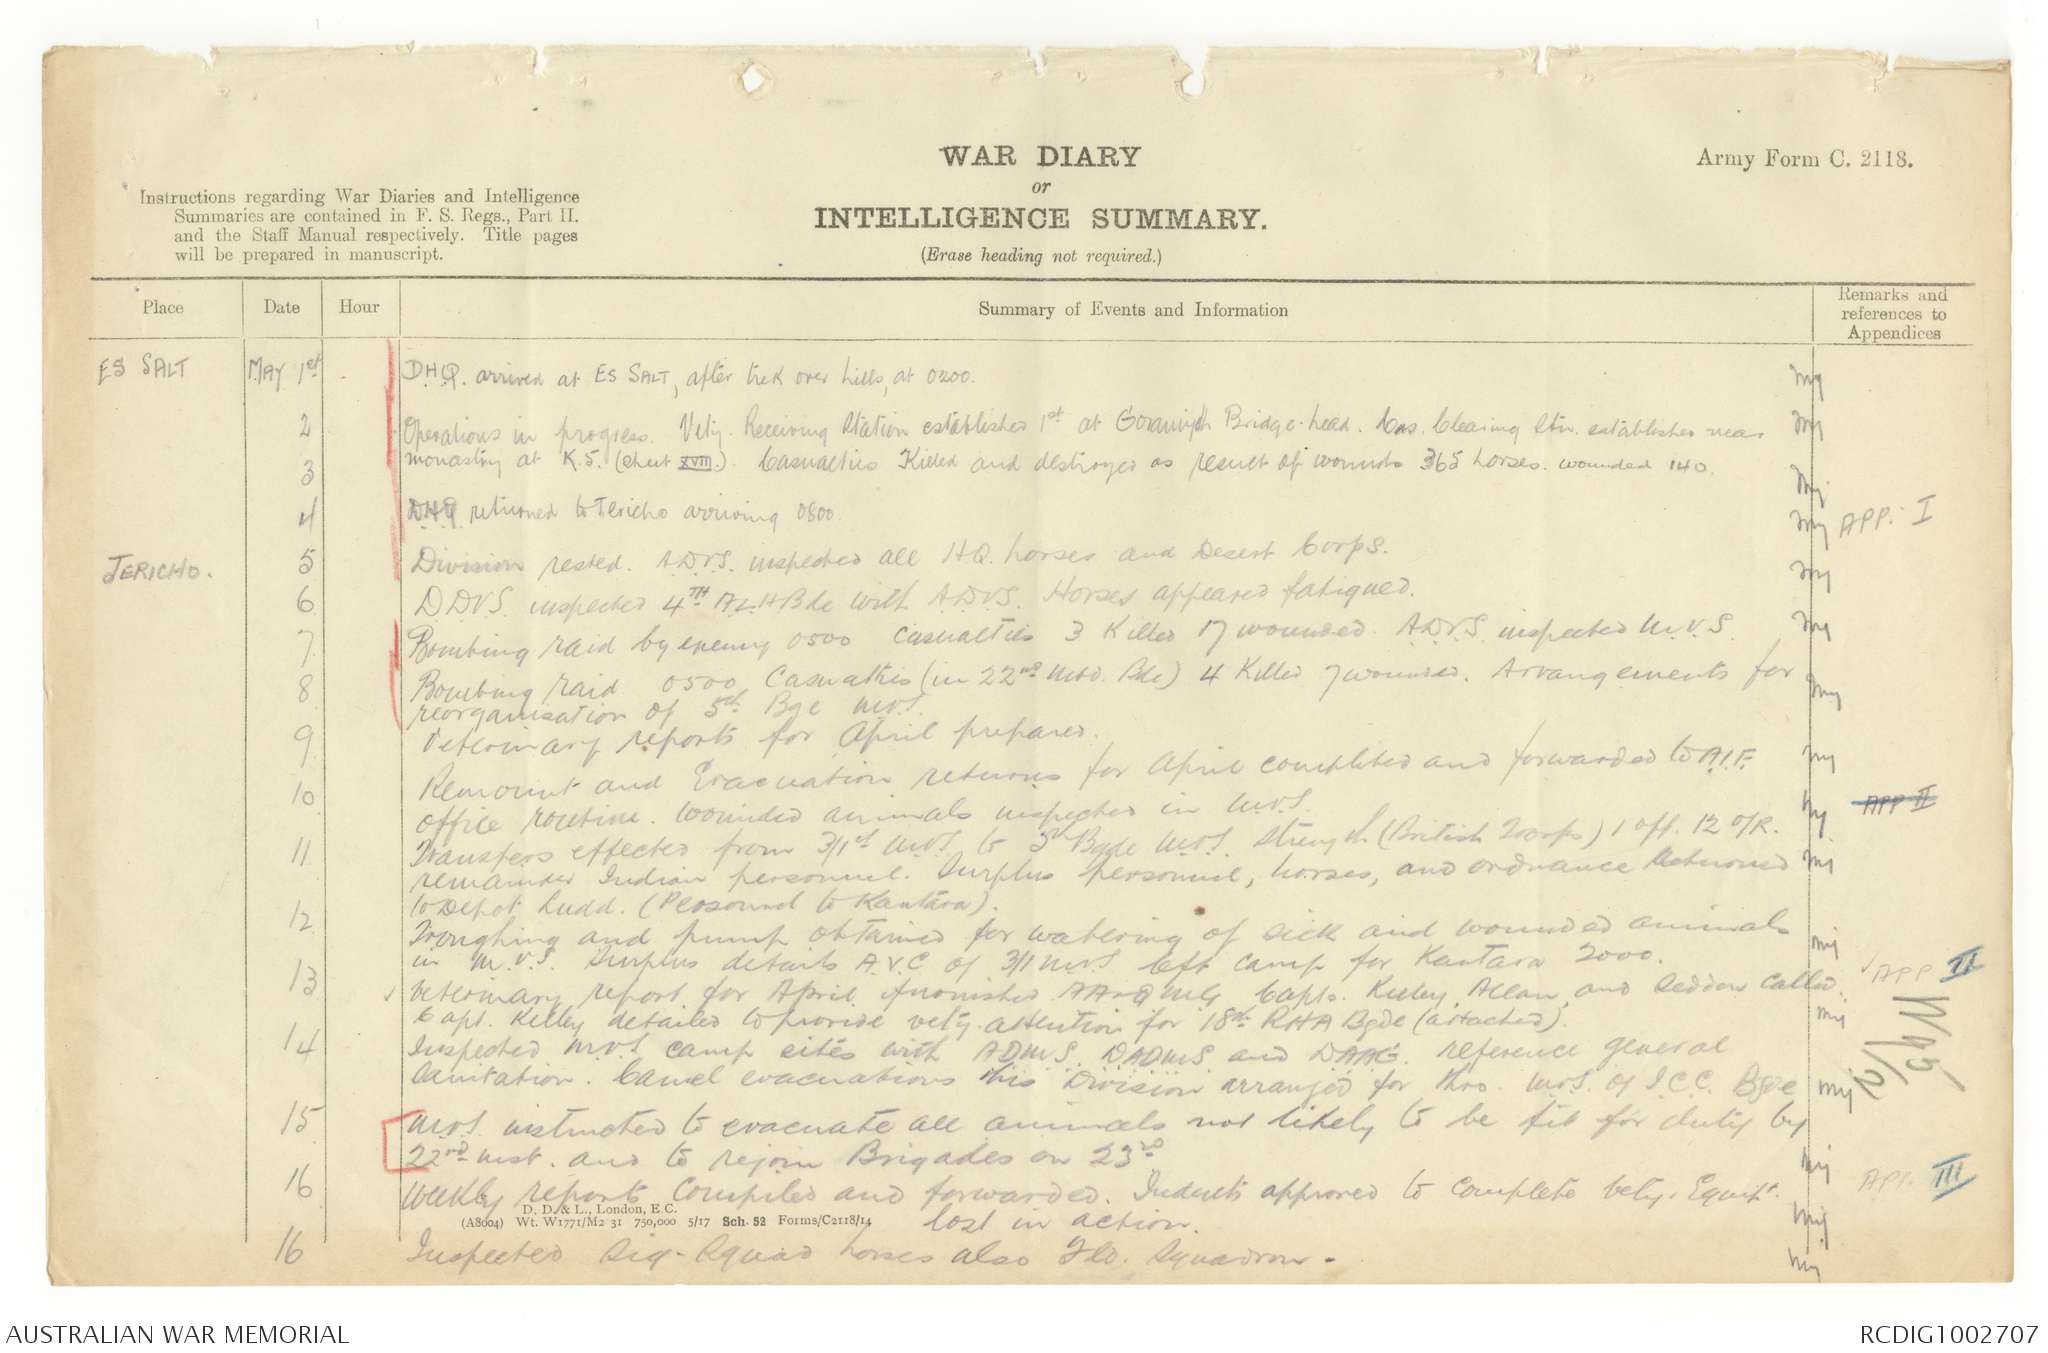 WAR DIARY
or
INTELLIGENCE SUMMARY.
(Erase heading not required.)
Army Form C. 2118.
Instructions regarding War Diaries and Intelligence
Summaries are contained in F. S. Regs., Part II.
and the Staff Manual respectively. Title pages
will be prepared in manuscript.
Place Date Hour Summary of Events and Information Remarks and references to Appendices
ES SALT MAY 1st D.H.Q. arrived at ES SALT, after trek over hills, at 0200.
2 Operations in progress. Vety. Receiving Station established 1st at Bridge-head. Cas. Clearing Stn. established near
3 monastry at K.5. (sheet XVII.) Casualties Killed and destroyed as result of wounds 365 horses. wounded 140.
4 D.H.Q. returned to Jericho arriving 0800. APP. I
JERICHO. 5 Division rested. A.D.V.S. inspected all H.Q. horses and Desert Corps.
6 D.D.V.S. inspected 4TH A.L.H Bde with A.D.V.S. Horses appeared fatigued.
7 Bombing raid by enemy 0500 casualties 3 killed 17 wounded. A.D.V.S. inspected M.V.S.
8 Bombing raid 0500 Casualties (in 22nd Mtd. Bde) 4 Killed 7 wounded. Arrangements for
reorganisation of 5th Bge M.V.S.
9 Veterinary reports for April prepared.
Remount and Evacuation returns for April completed and forwarded to A.I.F.
10 office routine. Wounded animals inspected in M.V.S. APP II
11 Transfers effected from 3/1st M.V.S. to 5th Bgde M.V.S. strength (British Troops) 1 off. 12 O/R.
remainder Indian personnel. Surplus personnel, horses, and ordnance returned
to Depot Ludd. (Personnel to Kantara).
12 Troughing and pump obtained for watering of sick and wounded animals
in M.V.S. Surplus details A.V.C of 3/1 M.V.S left camp for Kantara 2000.
13 Veterinary report for April furnished AA&QMG Capts. Kelley, Allan, and Seddon called. APP II
Capt. Kelley detailed to provide vety. attention for 18th RHA Bgde (attached).
14 Inspected M.V.S camp sites with ADMS. DADMS and DAAG. reference general
sanitation. Camel evacuations this Division arranged for thro. M.V.S. of I.C.C. Bgde
15 M.V.S. instructed to evacuate all animals not likely to be fit for duty by
22nd inst. and to rejoin Brigades on 23rd
16 Weekly reports compiled and forwarded. Indents approved to complete vety. Equipt. APP. III
lost in action.
D. D. & L., London, E.C.
(A8004) Wt. W1771/M2 31 750,000 5/17 Sch. 52 Forms/C2118/14
16 Inspected Sig-Squad horses also Fld. Squadron.
AUSTRALIAN WAR MEMORIAL
RCDIG1002707